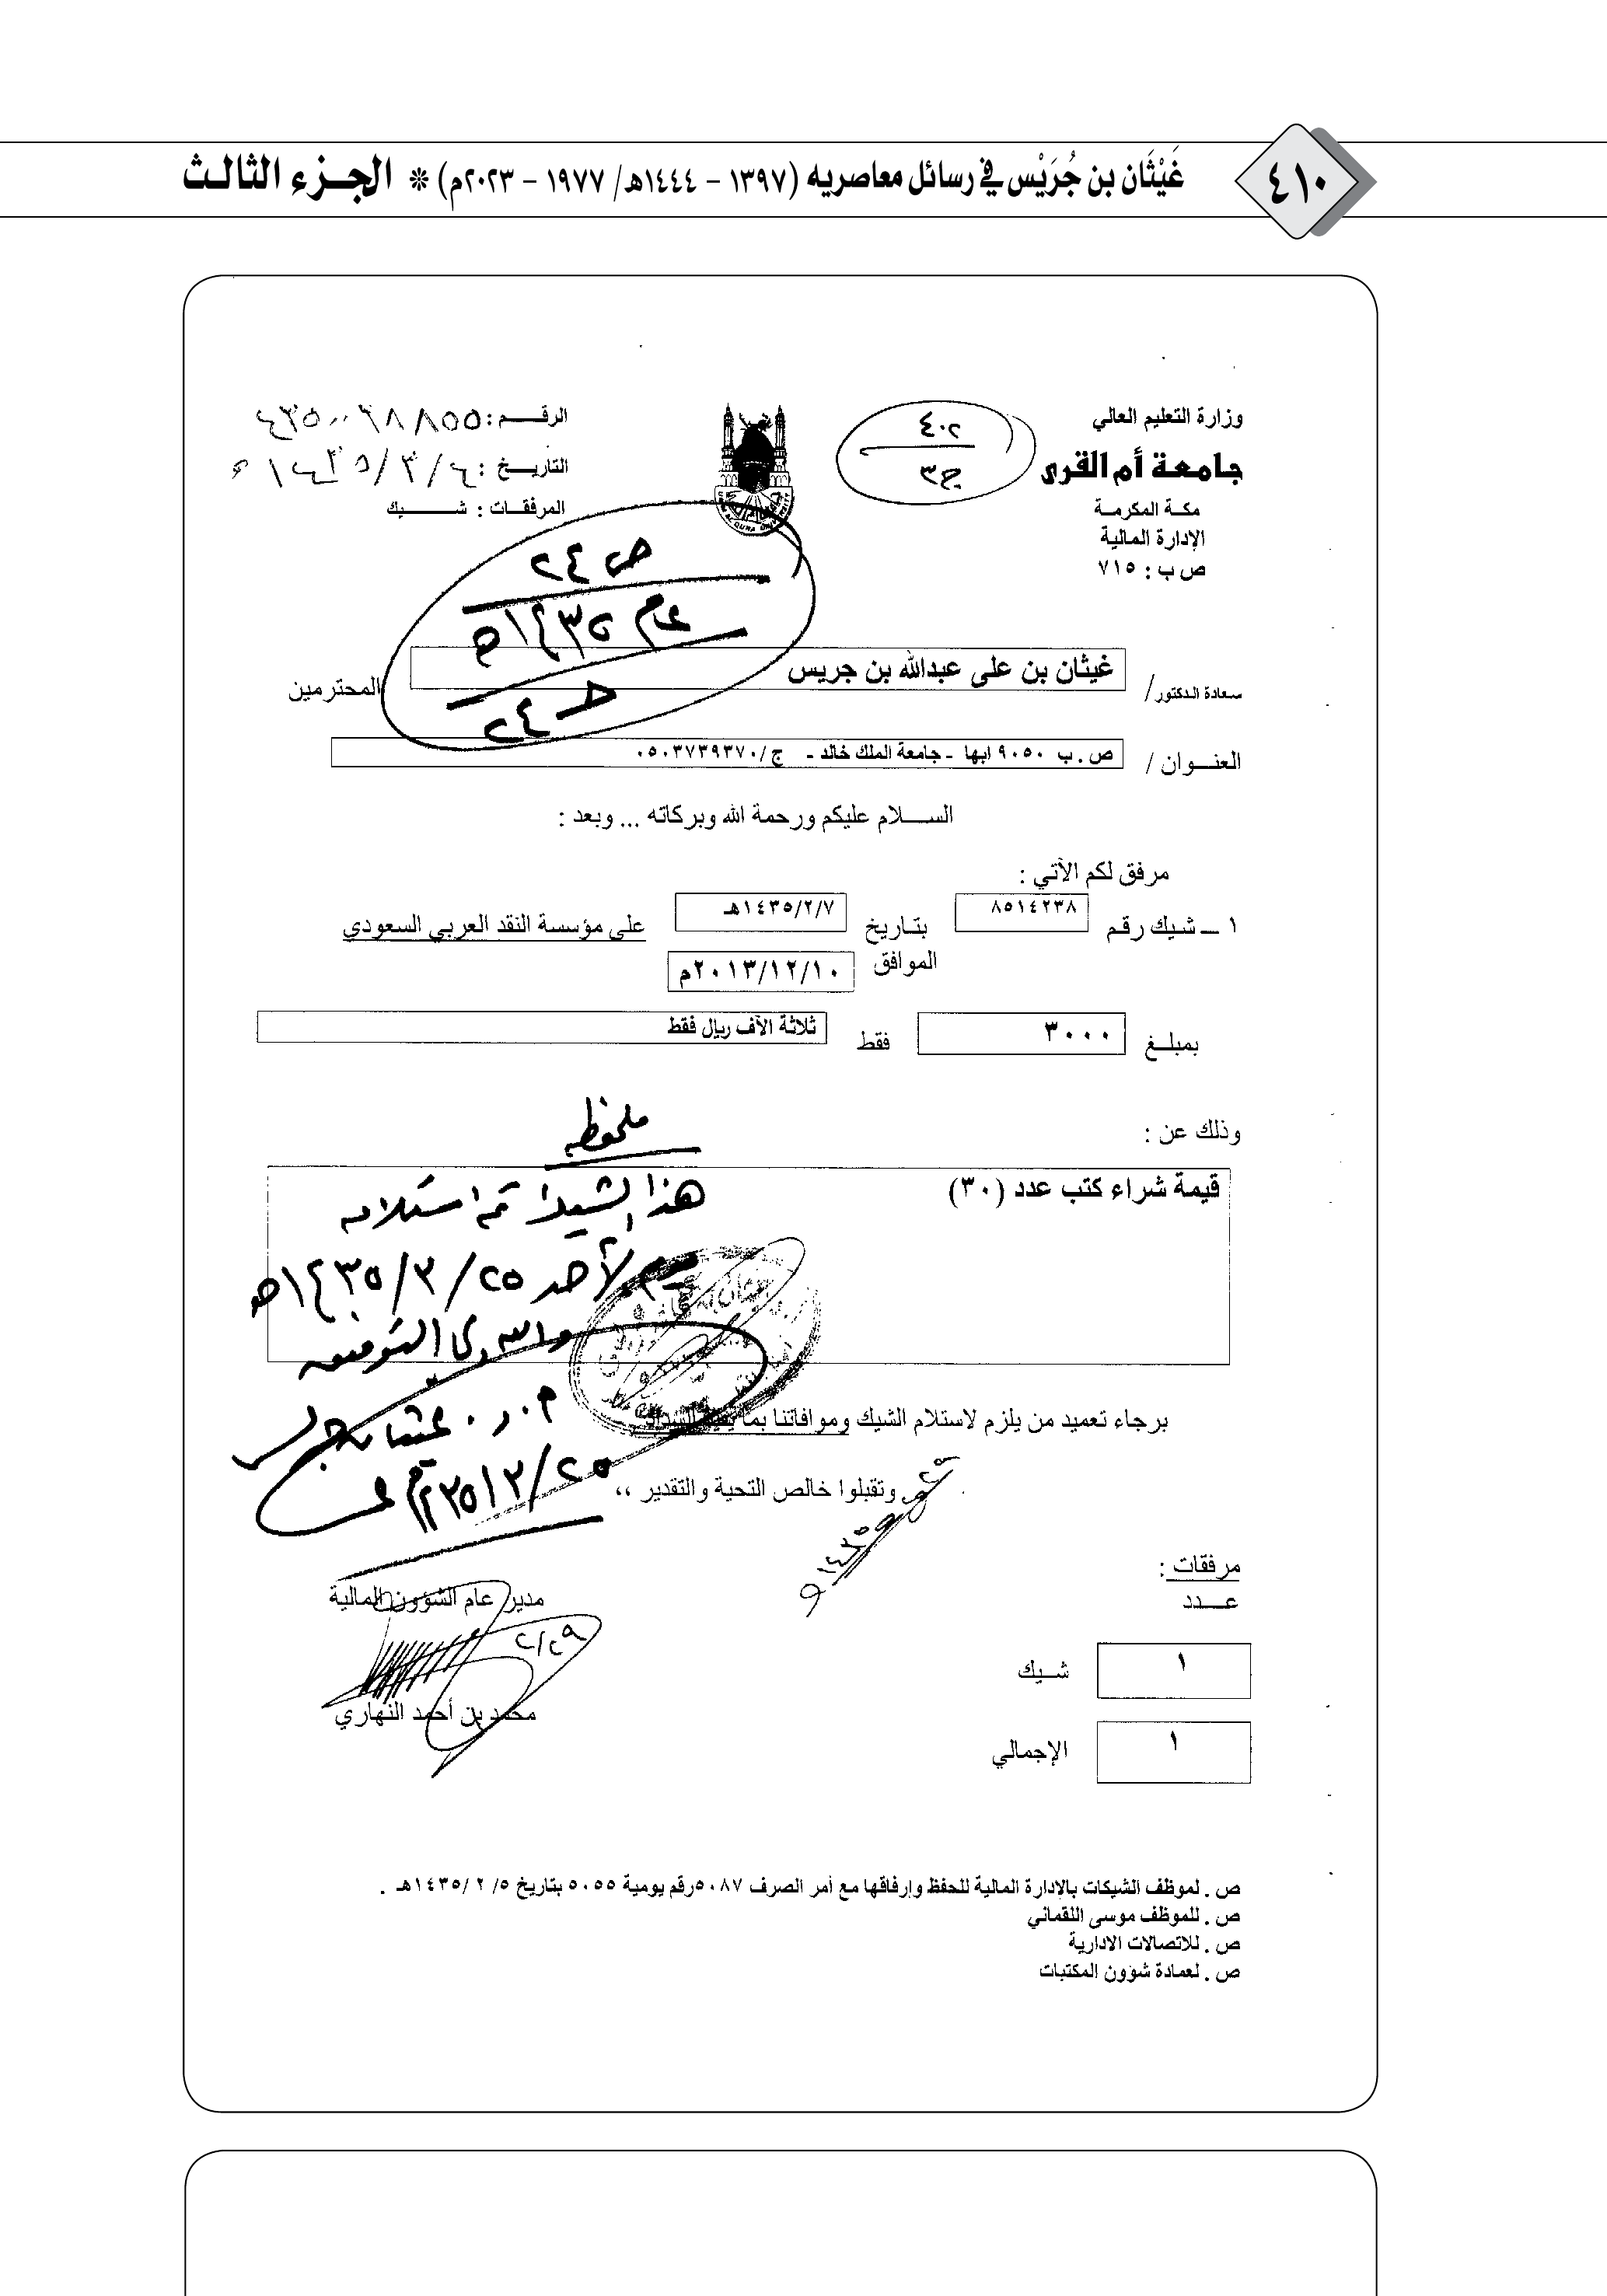 ٤١٠
غَيْثَان بن جُرَيْس في رسائل معاصريه (١٣٩٧ – ١٤٤٤هـ/ ١٩٧٧ – ٢٠٢٣م) * الجـزء الثالـث
وزارة التعليم العالي
جامعة أم القرى
مكـة المكرمـة
الإدارة المالية
ص ب : ٧١٥
٤٠٢
ج٣
الرقـــم :
التاريـــخ :
المرفقـات : شـــــيك
ص ٢٤
عام ١٤٣٥هـ
ح ٢٤
سعادة الدكتور/ غيثان بن على عبدالله بن جريس المحترمين
العنـــوان / ص . ب ٩٠٥٠ ابها - جامعة الملك خالد - ج /٠٥٠٣٧٣٩٣٧٠
الســـلام عليكم ورحمة الله وبركاته ... وبعد :
مرفق لكم الآتي :
١ ــ شـيك رقـم ٨٥١٤٢٣٨ بتـاريخ ١٤٣٥/٢/٧هـ على مؤسسة النقد العربي السعودي
الموافق ٢٠١٣/١٢/١٠م
بمبلــغ ٣٠٠٠ فقط ثلاثة الآف ريال فقط
وذلك عن :
قيمة شراء كتب عدد (٣٠)
ملحوظه
هذا الشيك تم استلامه
يوم الأحد ٢٥/٣/١٤٣٥هـ
والله ولي التوفيق
برجاء تعميد من يلزم لاستلام الشيك وموافاتنا بما يفيد السداد
وتقبلوا خالص التحية والتقدير ،،
مدير عام الشؤون المالية
٢/٢٩
محمد بن أحمد النهاري
مرفقات :
عـــدد
١ شــيك
١ الإجمالي
ص . لموظف الشيكات بالإدارة المالية للحفظ وإرفاقها مع أمر الصرف ٥٠٨٧رقم يومية ٥٠٥٥ بتاريخ ٥/ ٢ /١٤٣٥هـ .
ص . للموظف موسى اللقماني
ص . للاتصالات الادارية
ص . لعمادة شؤون المكتبات